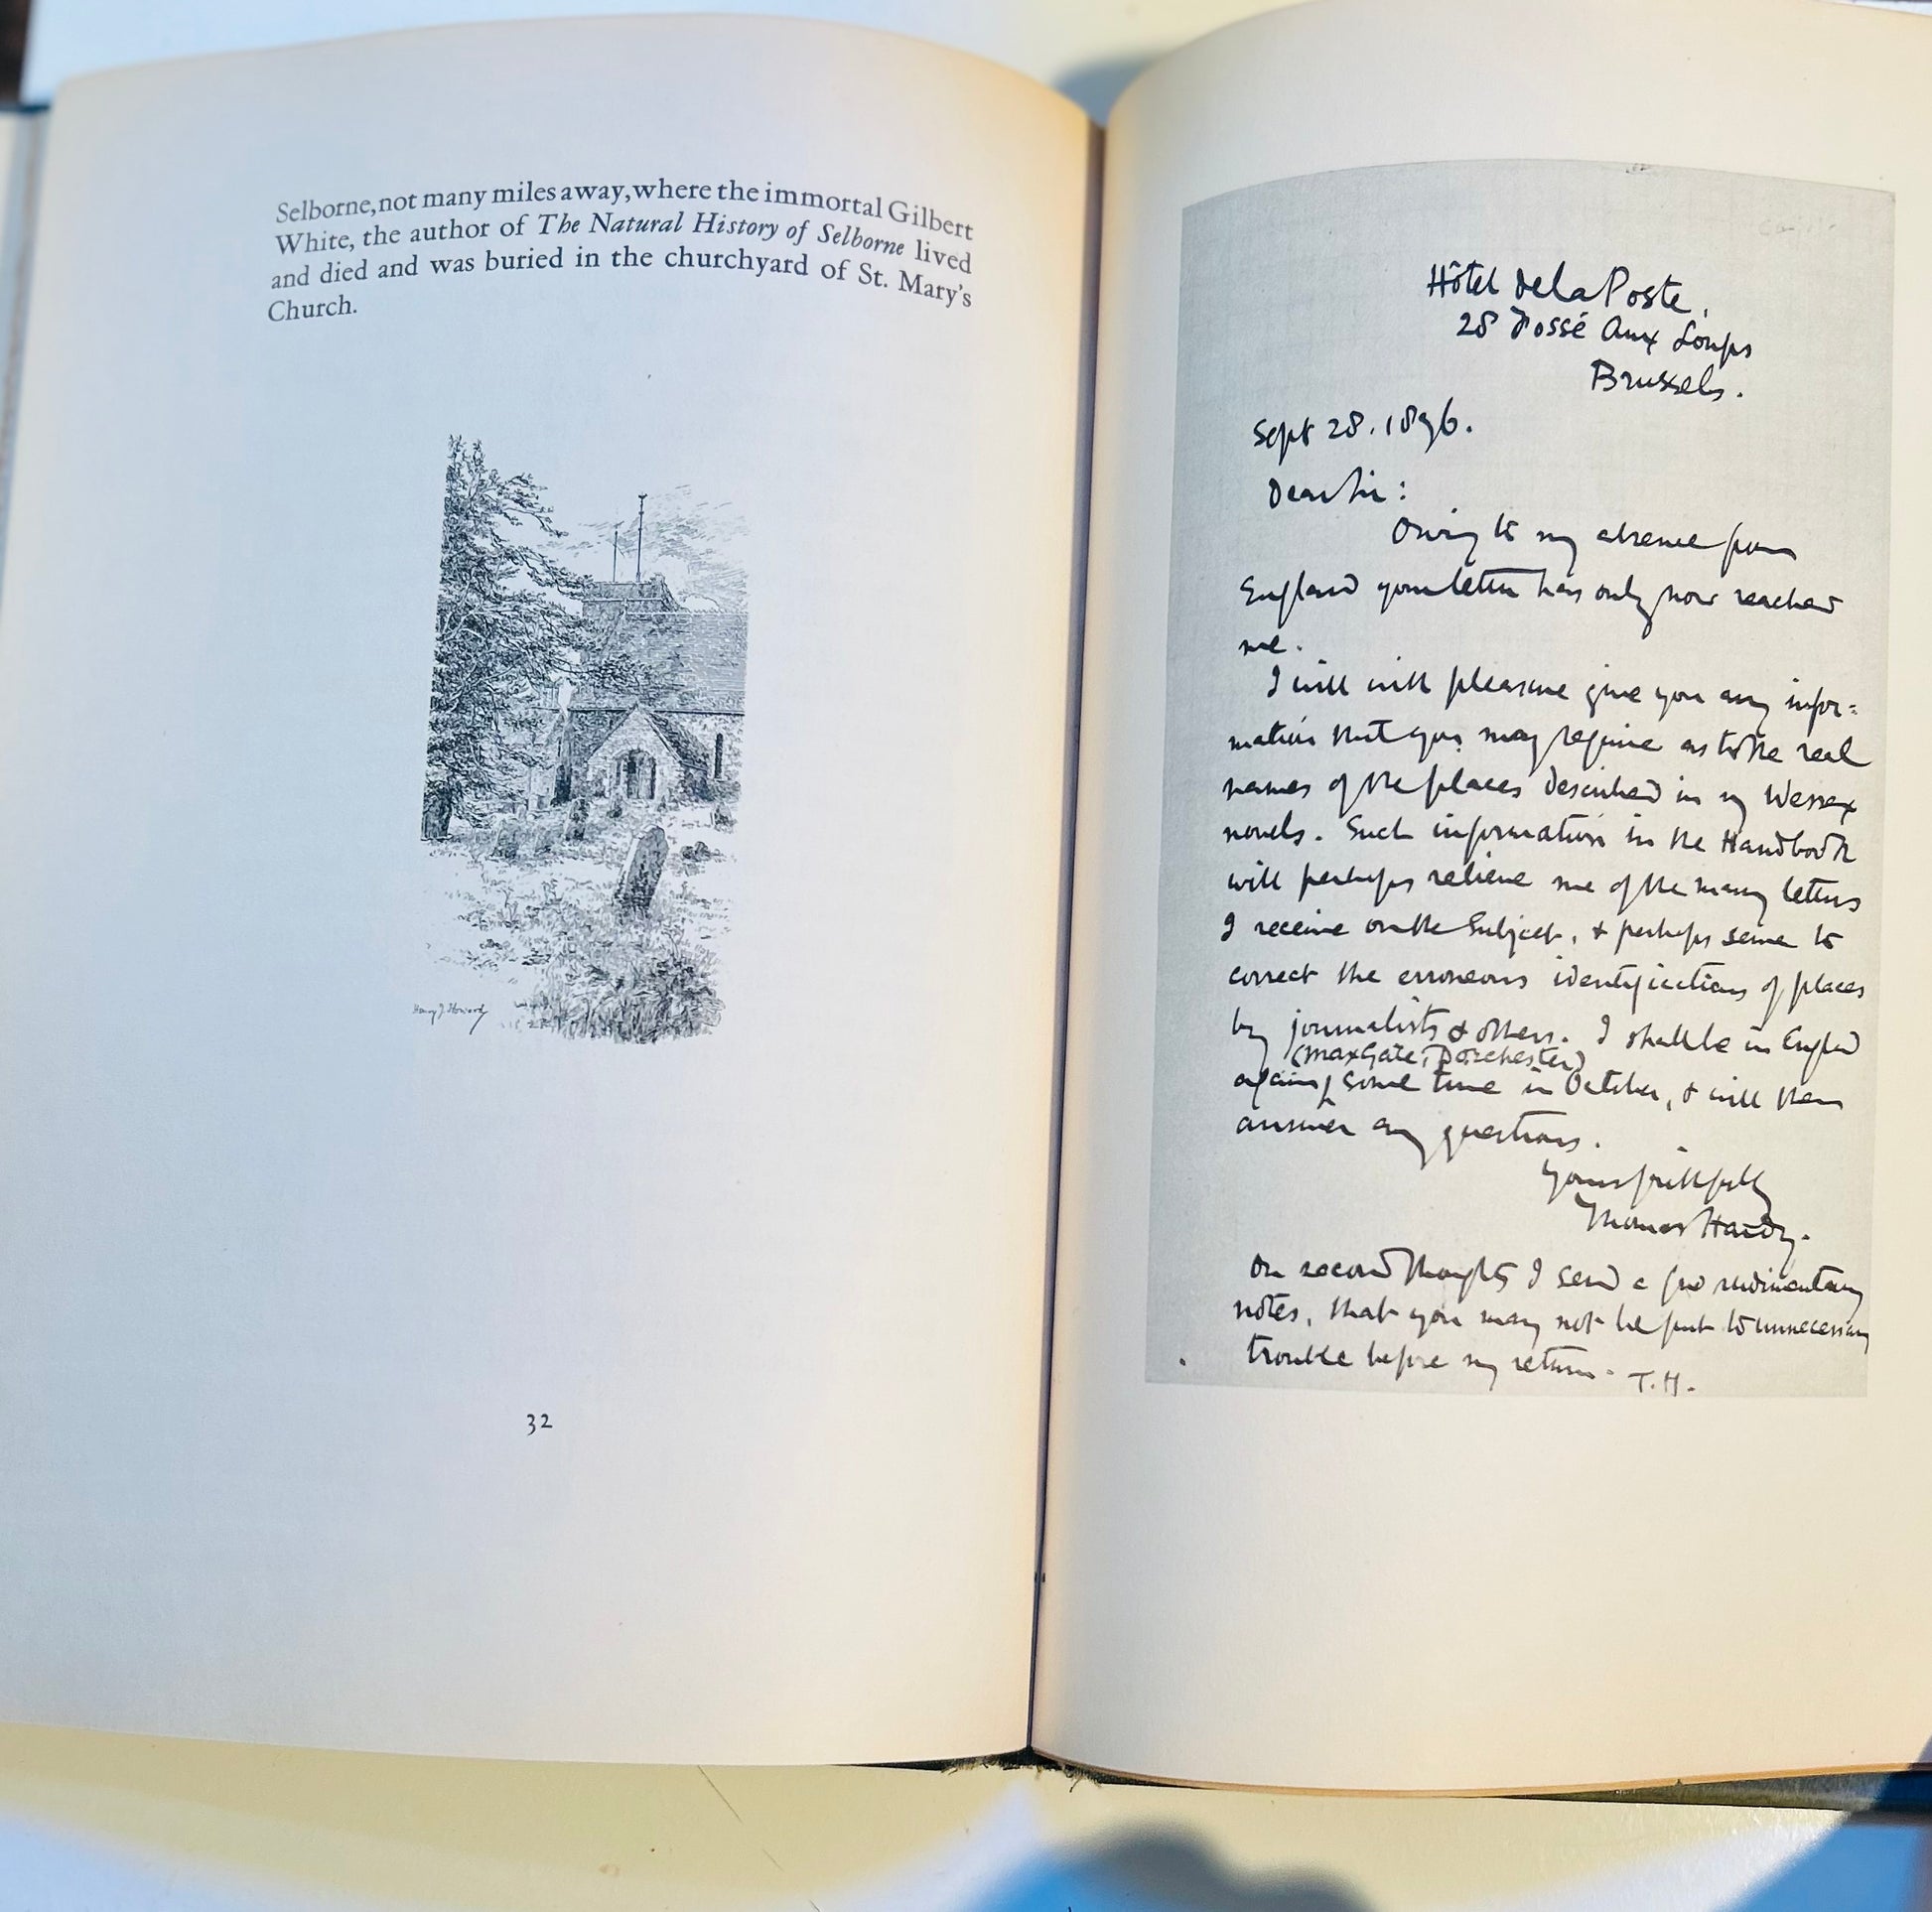 Selborne, not many miles away, where the immortal Gilbert
White, the author of The Natural History of Selborne lived
and died and was buried in the churchyard of St. Mary's
Church.
32
Hôtel de la Poste,
28 Fossé aux Loups
Brussels.
Sept 28. 1896.
Dear Sir:
Owing to my absence from
England your letter has only now reached
me.
I will with pleasure give you any infor=
mation that you may require as to the real
names of the places described in my Wessex
novels. Such information in the Handbook
will perhaps relieve me of the many letters
I receive on the subject, & perhaps serve to
correct the erroneous identifications of places
by journalists & others. I shall be in England
(Max Gate, Dorchester)
again some time in October, & will then
answer any questions.
Yours faithfully
Thomas Hardy.
On second thoughts I send a few rudimentary
notes, that you may not be put to unnecessary
trouble before my return. T.H.